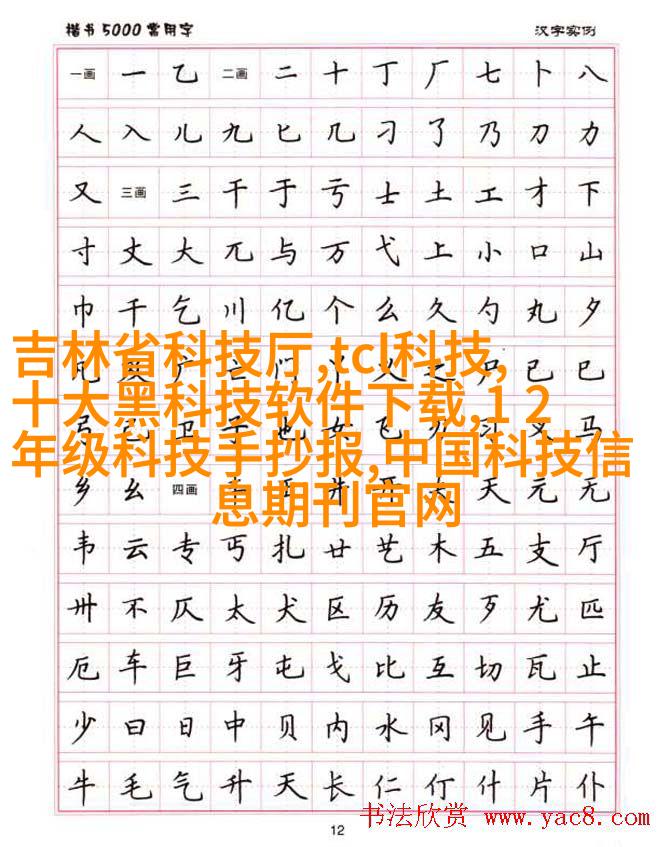 楷书5000常用字 汉字实例
一画 一 乙 二画 二 十 丁 厂 七 卜 八
人 入 儿 九 匕 几 刁 了 乃 刀 力
又 三画 三 干 于 亏 士 土 工 才 下
寸 丈 大 兀 与 万 弋 上 小 口 山
巾 千 乞 川 亿 个 么 久 勺 丸 夕
吉林省科技厅,tcl科技,
广 门 丫 义 之 尸 已 巳
十大黑科技软件下载,1 2
弓 卫 子 也 女 飞 习 叉 马
年级科技手抄报,中国科技信
乡 幺 四画 丰 井 开 天 元 无
息期刊官网
韦 云 专 丐 扎 廿 艺 木 五 支 厅
卅 不 仄 太 犬 区 历 友 歹 尤 匹
厄 车 巨 牙 屯 戈 比 互 切 瓦 止
少 曰 日 中 贝 内 水 冈 见 手 午
牛 毛 气 升 夭 长 仁 仃 什 片 仆
12
书法欣赏 www.yac8.com